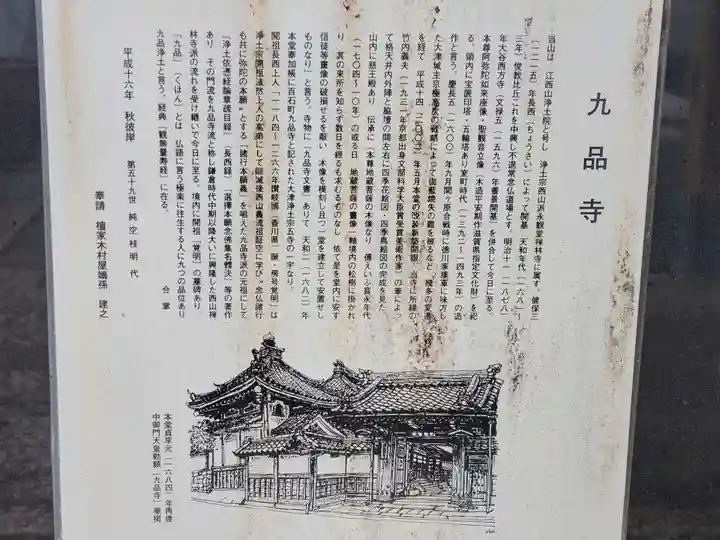 九品寺
当山は 江西山浄土院と号し 浄土宗西山派永観堂禅林寺に属す。健保三
(一二一五)年長西(ちょうさい)によって開基 天和年代(一六八一~
三年)俊教比丘これを中興し不退常念仏道場とす。明治十一(一八七八)
年大谷西方寺(文禄五(一五九六)年普善開基)を併合して今日に至る
本尊阿弥陀如来座像・聖観音立像(木造平安期作滋賀県指定文化財)を祀
る。領内に宝篋印塔・五輪塔あり室町時代(一三九二~一四九三年)の造
作と言う。慶長五(一六〇〇)年九月関ヶ原合戦時に徳川家康軍に味方し
た大津城主京極高次の戦略によって伽藍焼失の難を被るなど 幾多の変遷
を経て 平成十四(二〇〇二)年五月本堂の改装新築開眼 当寺に所縁の
竹内義夫(一九三一年京都出身文部科学大臣賞受賞美術作家)の筆によっ
て格天井内外陣と脇壇の間左右に四季花絵図・四季鳥絵図の完成を見た
山内に慈王殿あり 伝承に(本尊地蔵菩薩の木像なり 傅えいふ寛永年代
(一七〇四~一〇年)の或る日 地蔵菩薩の畫像一軸境内の松樹に掛かれ
り 其の来所を知らず数日を經るも求むるものなし 依て是を堂内に安ず
信徒等畫像の破損せるを歎い 木像を模刻し且つ一堂を建立して安置せし
ものなり)と言う。寺物に(九品寺文書 ありて 天和二(一六八二)年
本堂奉加帳に百石町九品寺と記された大津浄土宗五寺の一字なり
開祖長西上人(一一八四~一二六六年讃岐國(香川県)誕・房号覚明)は
浄土宗開祖法然上人の高弟にして師滅後西山義流祖証空に学び“念仏諸行
も共に弥陀の本願”とする『諸行本願義』を唱えた九品寺派の元祖にして
『浄土依憑経論章疏目録』(長西録)『選擇本願念佛集名體決』等の著作
あり その門流を九品寺流と称し鎌倉時代中期以降大いに興隆した西山禅
林寺派の流れを受け継いで今日に至る。境内に開祖「覚明」の墓碑あり。
「九品」(くほん)とは 仏語に言う極楽に往生する人に九つの品位あり
九品浄土と言う。経典『観無量寿経』に在る。 合掌
平成十六年 秋彼岸 第五十九世 純空桂明 代
奉請 檀家木村屋嫡孫 建之
本堂貞享元(一六八四)年再建
中御門天皇勅額「九品寺」奉掲